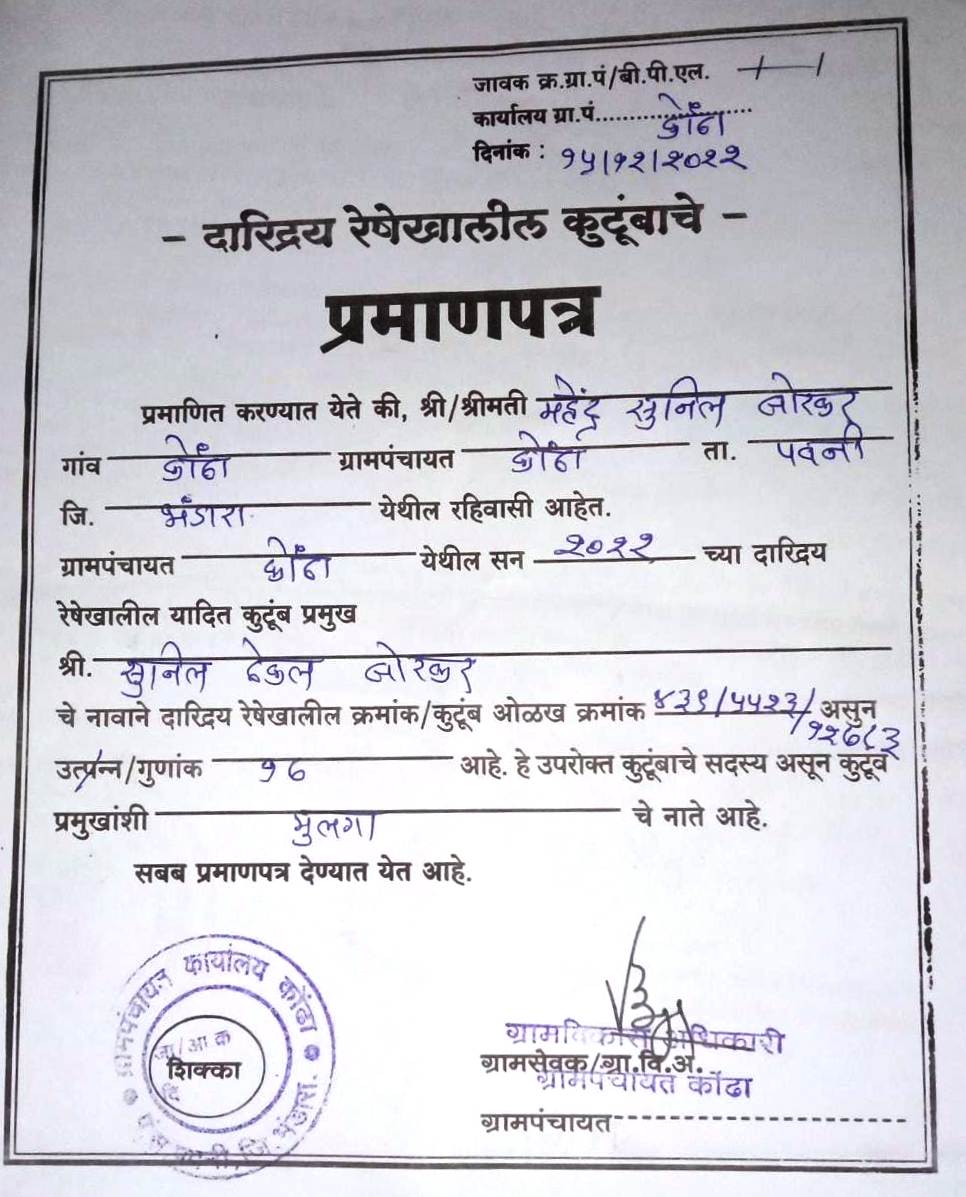 जावक क्र.ग्रा.पं/बी.पी.एल.
कार्यालय ग्रा.पं.................... कोंढा
दिनांक : १५/१२/२०२२
– दारिद्रय रेषेखालील कुटूंबाचे –
प्रमाणपत्र
प्रमाणित करण्यात येते की, श्री/श्रीमती महेंद्र सुनिल जोरकर
गांव कोंढा ग्रामपंचायत कोंढा ता. पवनी
जि. भंडारा येथील रहिवासी आहेत.
ग्रामपंचायत कोंढा येथील सन २०२२ च्या दारिद्रय
रेषेखालील यादित कुटूंब प्रमुख
श्री. सुनिल जोरकर
चे नावाने दारिद्रय रेषेखालील क्रमांक/कुटूंब ओळख क्रमांक असुन
उत्पन्न/गुणांक १६ आहे. हे उपरोक्त कुटूंबाचे सदस्य असून कुटूंव
प्रमुखांशी मुलगा चे नाते आहे.
सबब प्रमाणपत्र देण्यात येत आहे.
ग्रामपंचायत कार्यालय कोंढा
जि. भंडारा.
जा/आ क
शिक्का
ग्रामविकास अधिकारी
ग्रामसेवक/ग्रा.वि.अ.
ग्रामपंचायत कोंढा
ग्रामपंचायत